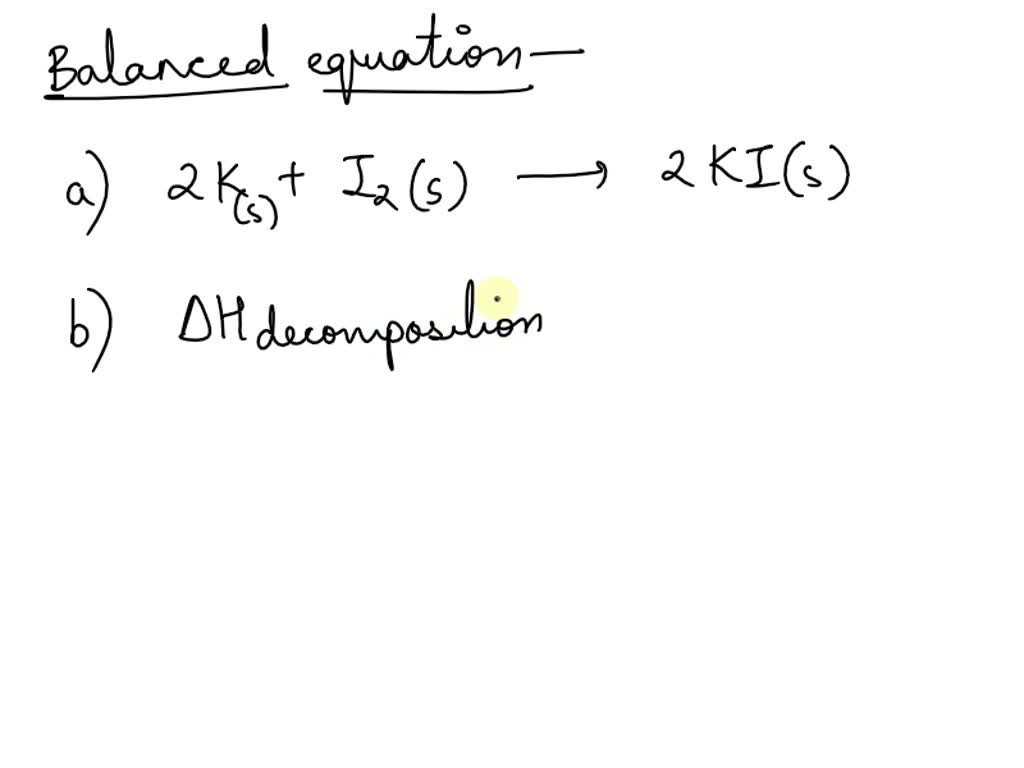 Balanced equation —
a) 2K(s) + I2(s) → 2KI(s)
b) ΔH decomposition